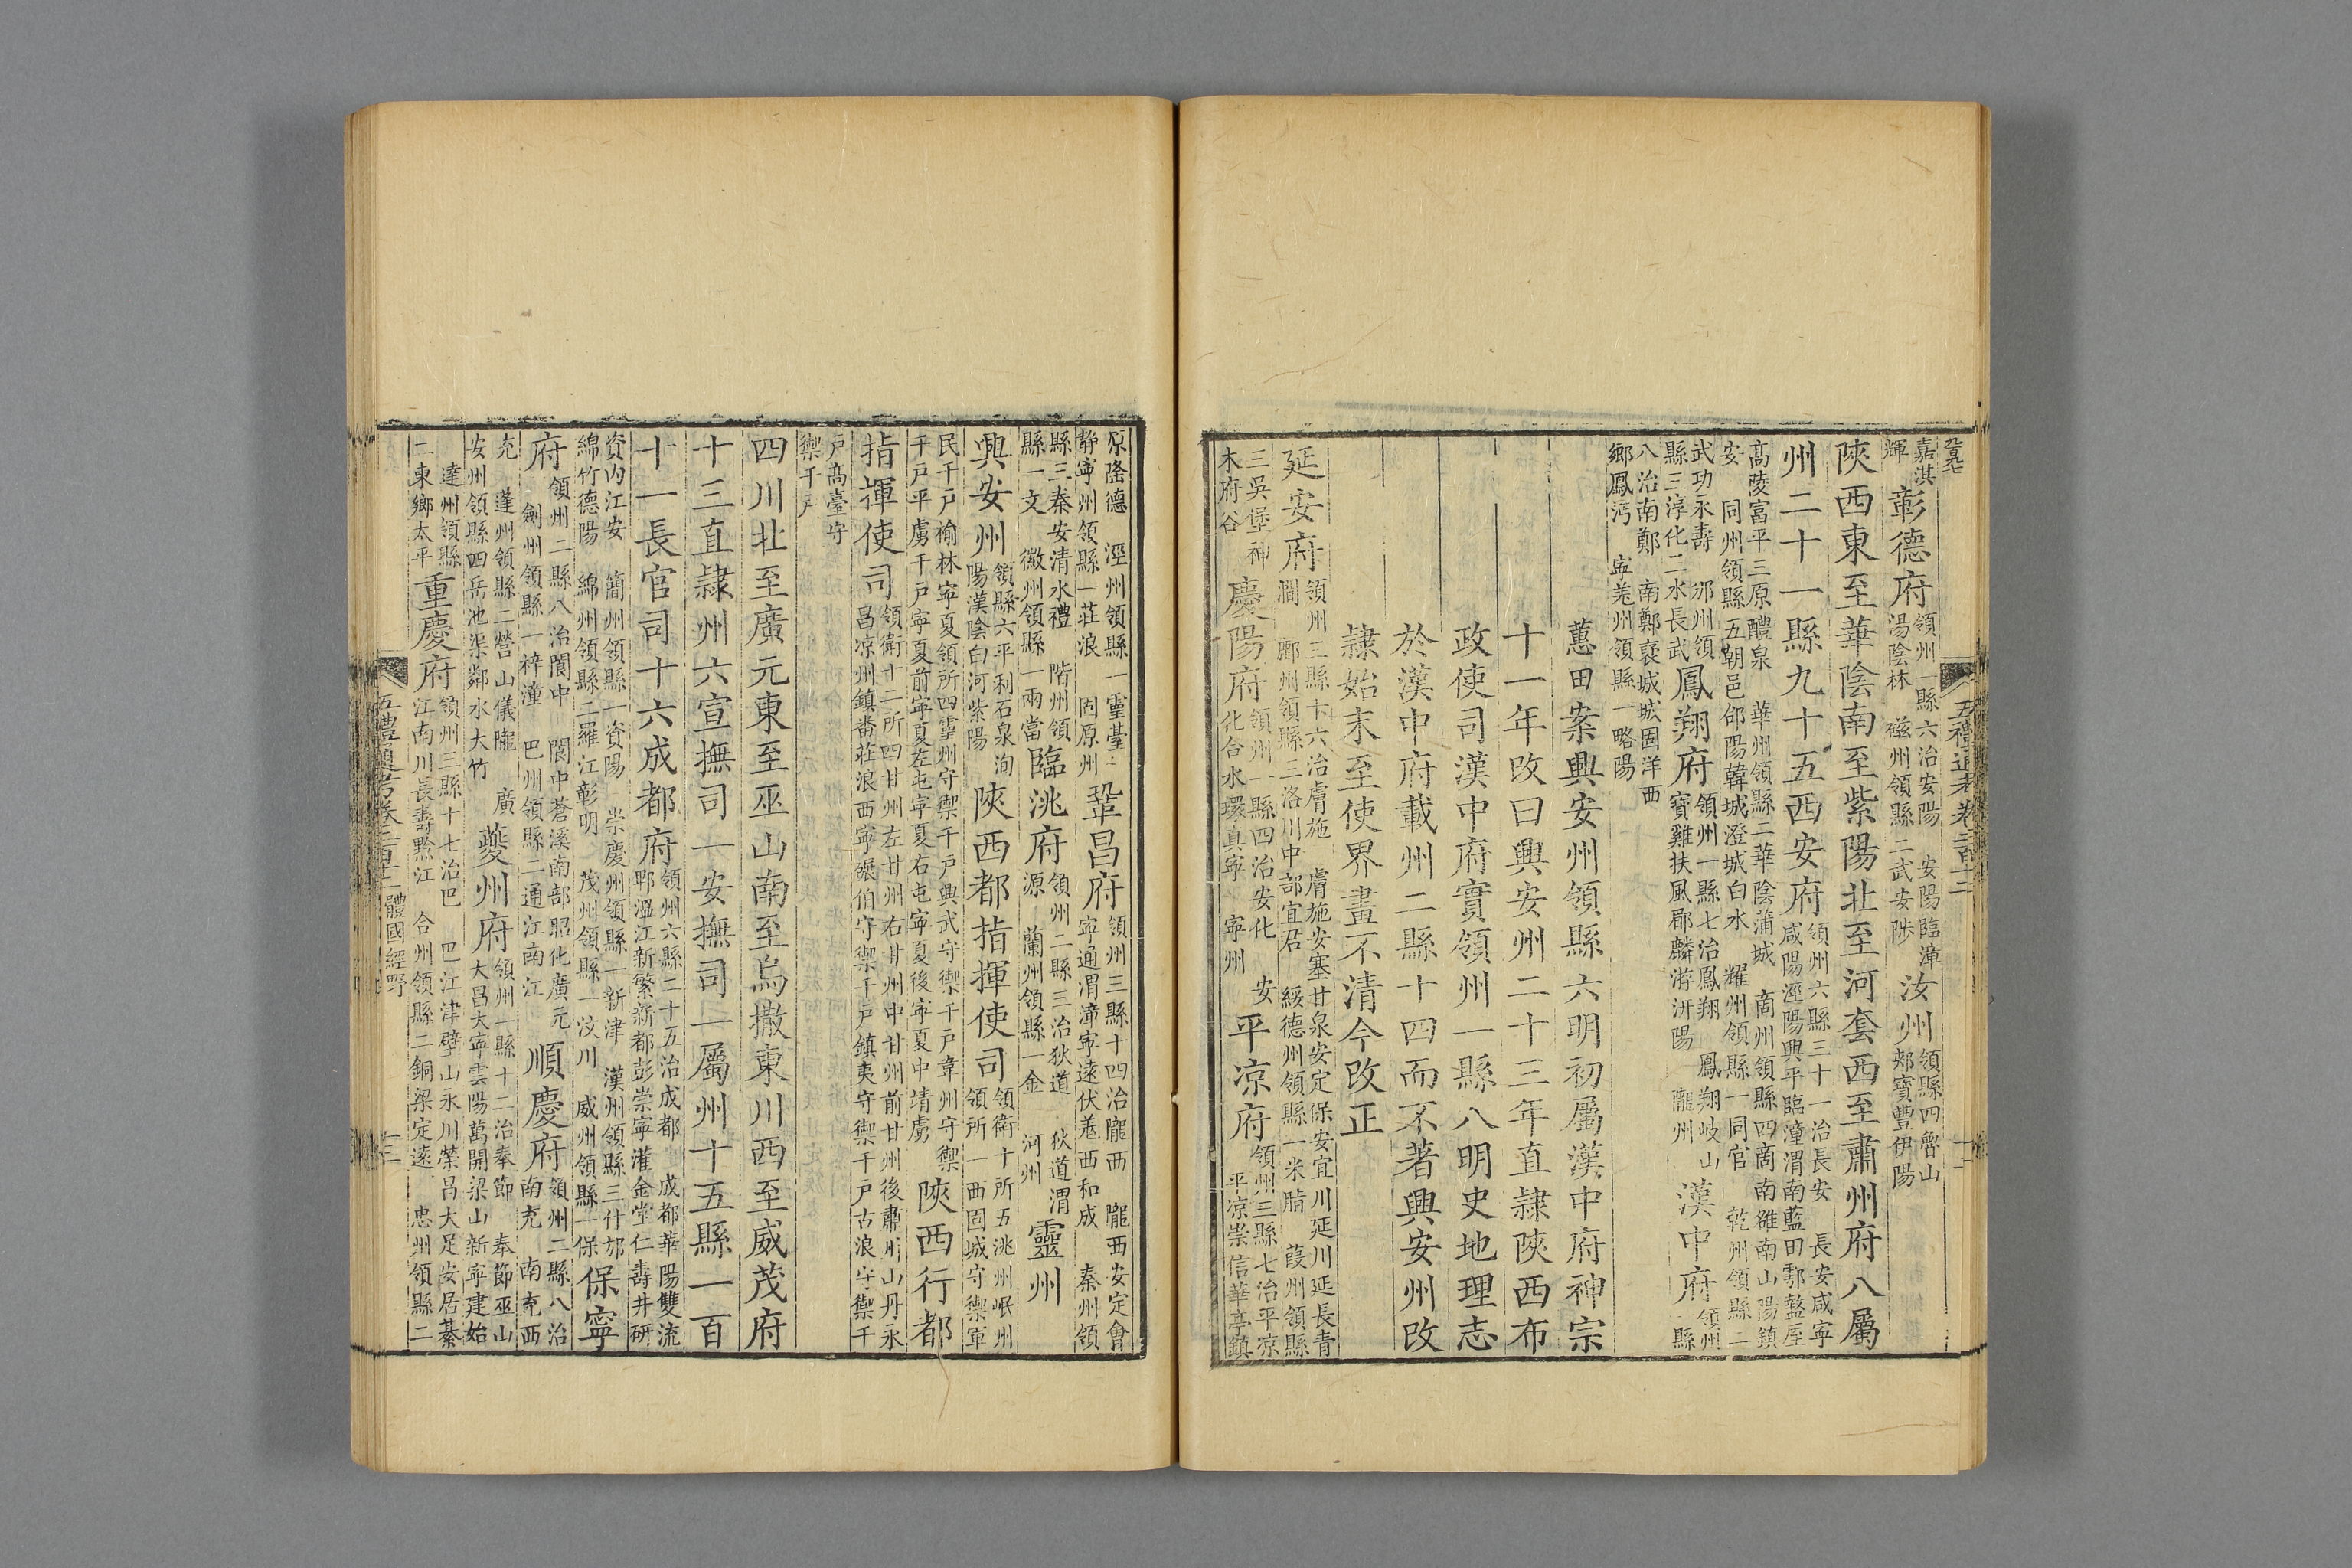 嘉淇輝彰德府領州一縣六治安陽 安陽臨漳湯陰林 磁州領縣二武安涉汝州領縣四魯山郟寶豐伊陽
陝西東至華陰南至紫陽北至河套西至肅州府八屬
州二十一縣九十五西安府領州六縣三十一治長安 長安咸寧咸陽涇陽興平臨潼渭南藍田鄠盩厔
高陵富平三原醴泉 華州領縣二華陰蒲城 商州領縣四商南雒南山陽鎮安 同州領縣五朝邑郃陽韓城澄城白水 耀州領縣一同官 乾州領縣二
武功永壽 邠州領縣三淳化二水長武鳳翔府領州一縣七治鳳翔 鳳翔岐山寶雞扶風郿麟游汧陽 隴州漢中府領州一縣
八治南鄭 南鄭襃城城固洋西鄉鳳沔 寧羗州領縣一略陽
蕙田案興安州領縣六明初屬漢中府神宗
十一年改曰興安州二十三年直隸陝西布
政使司漢中府實領州一縣八明史地理志
於漢中府載州二縣十四而不著興安州改
隸始末至使界畫不清今改正
延安府領州三縣十六治膚施 膚施安塞甘泉安定保安宜川延川延長青澗 鄜州領縣三洛川中部宜君 綏德州領縣一米脂 葭州領縣
三吳堡神木府谷慶陽府領州一縣四治安化 安化合水環真寧 寧州平涼府領州三縣七治平涼 平涼崇信華亭鎮
原隆德 涇州領縣一靈臺 靜寧州領縣一莊浪 固原州鞏昌府領州三縣十四治隴西 隴西安定會寧通渭漳寧遠伏羗西和成 秦州領
縣三秦安清水禮 階州領縣一文 徽州領縣一兩當臨洮府領州二縣三治狄道 狄道渭源 蘭州領縣一金 河州靈州
興安州領縣六平利石泉洵陽漢陰白河紫陽陝西都指揮使司領衛十所五洮州岷州領所一西固城守禦軍
民千戶榆林寧夏領所四靈州守禦千戶興武守禦千戶韋州守禦千戶平虜千戶寧夏前寧夏左屯寧夏右屯寧夏後寧夏中靖虜陝西行都
指揮使司領衛十二所四甘州左甘州右甘州中甘州前甘州後肅州山丹永昌涼州鎮番莊浪西寧碾伯守禦千戶鎮夷守禦千戶古浪守禦千
戶高臺守禦千戶
四川北至廣元東至巫山南至烏撒東川西至威茂府
十三直隸州六宣撫司一安撫司一屬州十五縣一百
十一長官司十六成都府領州六縣二十五治成都 成都華陽雙流郫溫江新繁新都彭崇寧灌金堂仁壽井研
資內江安 簡州領縣一資陽 崇慶州領縣一新津 漢州領縣三什邡綿竹德陽 綿州領縣二羅江彰明 茂州領縣一汶川 威州領縣一保保寧
府領州二縣八治閬中 閬中蒼溪南部昭化廣元 劍州領縣一梓潼 巴州領縣二通江南江順慶府領州二縣八治南充 南充西
充 蓬州領縣二營山儀隴 廣安州領縣四岳池渠鄰水大竹夔州府領州一縣十二治奉節 奉節巫山大昌大寧雲陽萬開梁山新寧建始
達州領縣二東鄉太平重慶府領州三縣十七治巴 巴江津璧山永川榮昌大足安居綦江南川長壽黔江 合州領縣二銅梁定遠 忠州領縣二
五禮通考卷二百十二 體國經野 十三